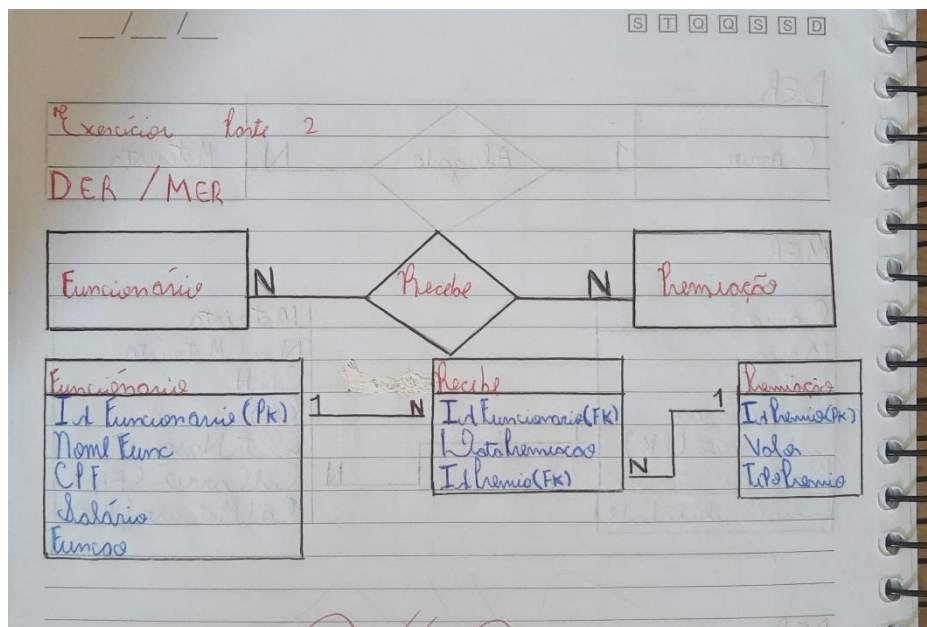 __/__/__
S T Q Q S S D
Exercícios Parte 2
DER / MER
Funcionário N Recebe N Premiação
Funcionario
Id Funcionario (PK)
Nome Func
CPF
Salário
Funcao
1 N
Recebe
Id Funcionario (FK)
DataPremiacao
Id Premio (FK)
N 1
Premiação
Id Premio (PK)
Valor
TipoPremio